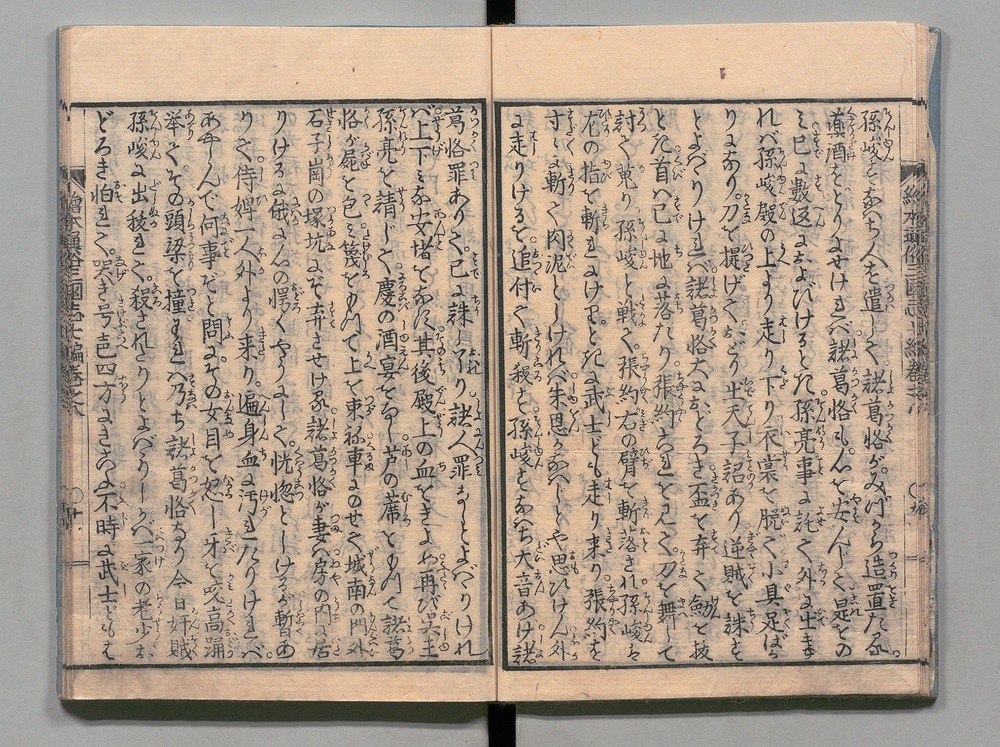 孫峻すなはち人を遣して諸葛恪がみづから造置たる
薬酒をとりよせければ諸葛恪も心を安んじて是をの
み已に数返におよびけるとき孫亮事に託て外に出去
れバ孫峻殿の上より走り下り衣裳を脱ぐ小具足ばか
りになり刀を提げておどり出天子詔あり逆賊を誅す
とよバりければ諸葛恪大におどろき盃を弃て劔を抜
とき首ハ已に地に落たり張約これを見て刀を舞して
討て蒐り孫峻と戦て張約右の臂を斬落され孫峻も
左の指を斬とき武士ども走り来り張約を
すぐに斬て肉泥としければ朱恩かなハじとや思ひけん外
に走りけるを追付て斬殺す孫峻すなハち大音あげ諸
葛恪罪ありて已に誅し了り諸人罪なしとよバりけれ
バ上下みな安堵をなす其後殿上の血をきよめ再び呉王
孫亮を請じて慶の酒宴をなし芦の蓆をもつて諸葛
恪が屍を包ミ篾をもつて上を束ね車にのせて城南の門外
石子崗の塚坑にぞ弃させける諸葛恪が妻ハ房の内に居
りけるが俄に心の愕くやうにして恍惚としけるが暫あ
りて侍婢一人外より来り遍身血に汚れたりければ
あやしんで何事ぞと問にその女目を怒し牙を咬高踊
挙てその頭梁を撞バ乃ち諸葛恪なり今日奸賊
孫峻に出抜れて殺されたりとよバりしかバ一家の老少お
どろき怕れて哭き号ぶ声四方にきこえ不時に武士ども
絵本通俗三国志七編巻之六